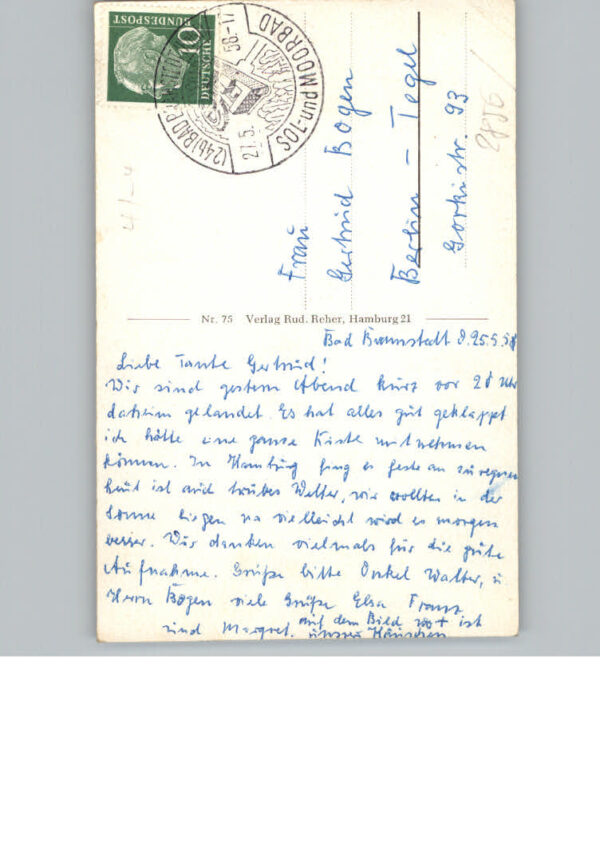 10
DEUTSCHE
BUNDESPOST
(24b) BAD
27.5.58-17
SOL- und MOORBAD
Frau
Gertrud Bogen
Berlin - Tegel
Gorkistr. 93
Nr. 75 Verlag Rud. Reher, Hamburg 21
Bad Bramstedt d. 25.5.58
Liebe Tante Gertrud!
Wir sind gestern Abend kurz vor 20 Uhr
daheim gelandet. Es hat alles gut geklappt
ich hätte eine ganze Kiste mitnehmen
können. In Hamburg fing es feste an zu regnen
heut ist auch trübes Wetter, wir wollten in der
Sonne liegen na vielleicht wird es morgen
besser. Wir danken vielmals für die gute
Aufnahme. Grüße bitte Onkel Walter, u
Herrn Bogen viele Grüße Elsa Franz
und Margret. auf dem Bild wo + ist
unser Häuschen